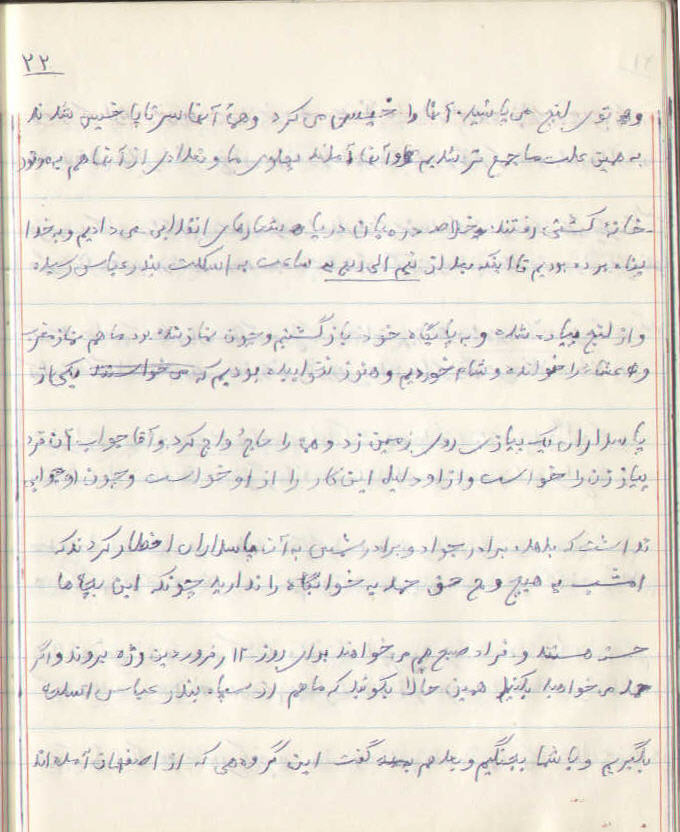 ۲۲
و توی لنج می پاشید. آنها را خیس می کرد و همۀ آنها سر تا پا خیس شدند
به همین علت ما جمع تر شدیم و آنها آمدند پهلوی ما و تعدادی از آنها هم به موتور
خانۀ کشتی رفتند. خلاصه در میان دریا شعارهای انقلابی می دادیم و به خدا
پناه برده بودیم تا اینکه بعد از نیم الی ربع ساعت به اسکلت بندرعباس رسیده
و از لنج پیاده شده و به پایگاه خود بازگشتیم و چون نماز نشده بود ما هم نماز مغرب
و عشاء را خوانده و شام خوردیم و هنوز نخوابیده بودیم که می خواستند یکی از
پاسداران یک پیازی روی زمین زد و همه را حاج و واج کرد و آقا جواب آن فرد
پیاز زن را خواست و از او دلیل این کار را از او خواست و چون او جوابی
نداشت که بعد برادر جواد و برادر شمس به آن پاسداران اخطار کردند که
امشب به هیچ وجه حق حمله به خوابگاه را ندارید چونکه این بچه ها
خسته هستند و فردا صبح هم می خواهند برای روز ۱۲ فروردین رژه بروند و اگر
حمله می خواهید بکنید همین حالا بگوئید که ما هم از سپاه بندر عباس اسلحه
بگیریم و با شما بجنگیم و بعد هم گفت این گروهی که از اصفهان آمده اند